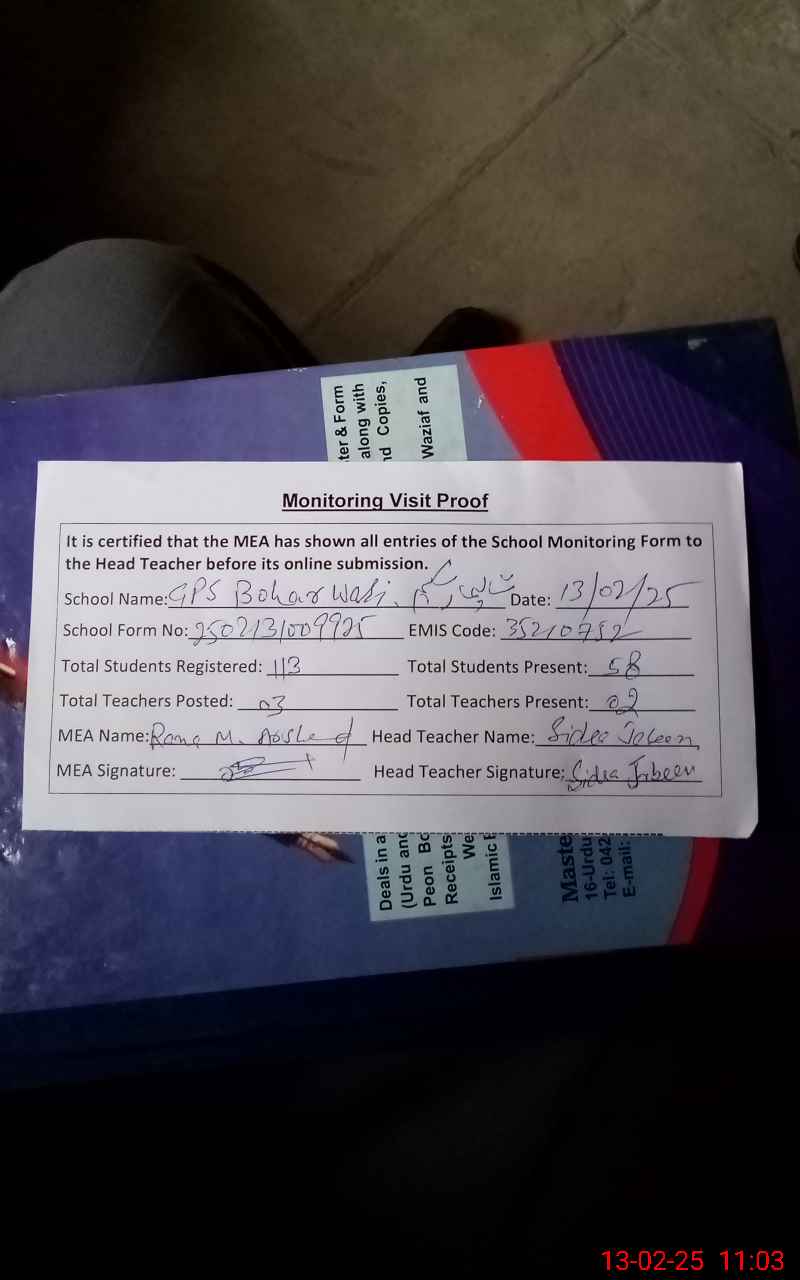 ter & Form
along with
nd Copies,
Waziaf and
Monitoring Visit Proof
It is certified that the MEA has shown all entries of the School Monitoring Form to
the Head Teacher before its online submission.
School Name: GPS Bohar Wali. Date: 13/02/25
School Form No: 2502131009925 EMIS Code: 35210752
Total Students Registered: 113 Total Students Present: 58
Total Teachers Posted: 03 Total Teachers Present: 02
MEA Name: Rana M. Head Teacher Name:
MEA Signature: Head Teacher Signature:
Deals in a
(Urdu and
Peon Bo
Receipts
We
Islamic
Maste
16-Urdu
Tel: 042
E-mail:
13-02-25 11:03